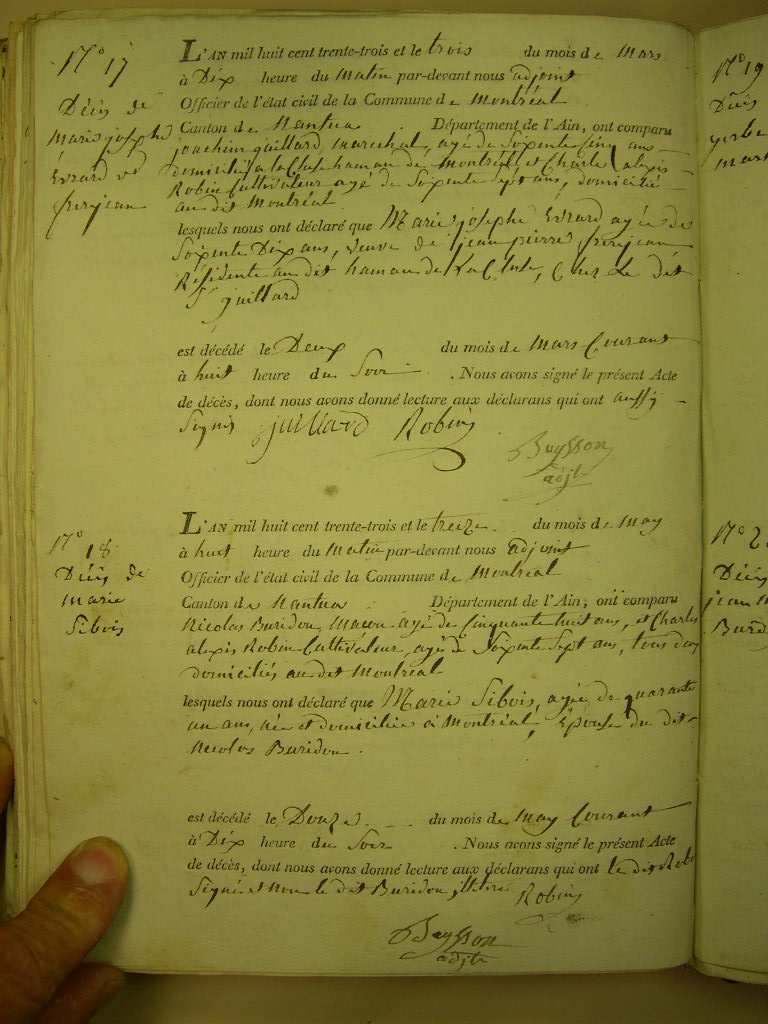 N.º 17
Décès de
Marie josephe
Évrard ve
frerejean
L'AN mil huit cent trente-trois et le trois du mois de Mars
à Dix heure du Matin par-devant nous adjoint
Officier de l'état civil de la Commune de Montréal
Canton de Nantua . Département de l'Ain, ont comparu
joachim juillard marechal, agé de Soixente Cinq ans
domicilié a la Cluse hamau de Montréal, et Charle alexis
Robin Cultivateur agé de Soixente Sept ans, domicilié
au dit Montréal
lesquels nous ont déclaré que Marie josephe Évrard agée de
Soixente Dix ans, veuve de jean pierre frerejean
Résidente au dit hamau de La Cluse, Chez Le dit
Sr juillard
est décédé le Deux du mois de Mars Courant
à huit heure du Soir . Nous avons signé le présent Acte
de décès, dont nous avons donné lecture aux déclarans qui ont aussy
Signés juillard Robin
Buysson
adjt
N.º 18
Décès de
Marie
Sibois
L'AN mil huit cent trente-trois et le treize du mois de May
à huit heure du Matin par-devant nous adjoint
Officier de l'état civil de la Commune de Montréal
Canton de Nantua . Département de l'Ain, ont comparu
Nicolas Buridon Macon agé de Cinquante huit ans, et Charle
alexis Robin Cultivateur, agé de Soixente Sept ans, tous deux
domiciliés au dit Montréal
lesquels nous ont déclaré que Marie Sibois, agée de quarante
un ans, née et domiciliée à Montréal, Épouse du dit
Nicolas Buridon .
est décédé le Douze du mois de May Courant
à Dix heure du Soir . Nous avons signé le présent Acte
de décès, dont nous avons donné lecture aux déclarans qui ont le dit Robin
Signé et non le dit Buridon, Robin
Buysson
adjt
N.º 19
Décès
Mar
N.º 2
Décès
jean
Burid